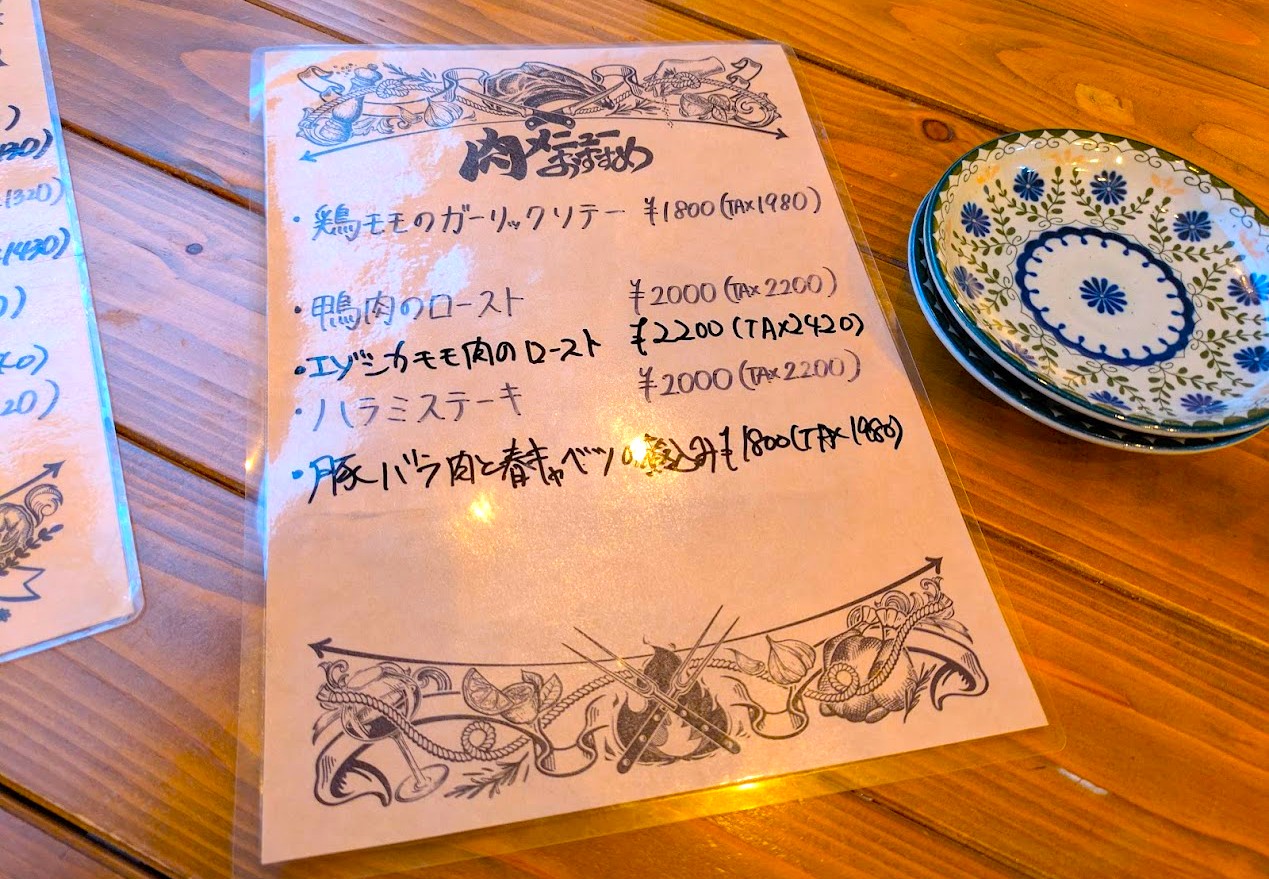 肉メニュー
おすすめ
・鶏モモのガーリックソテー ¥1800(TAX1980)
・鴨肉のロースト ¥2000(TAX2200)
・エゾシカモモ肉のロースト ¥2200(TAX2420)
・ハラミステーキ ¥2000(TAX2200)
・豚バラ肉と春キャベツの煮込み ¥1800(TAX1980)
1320)
1430)